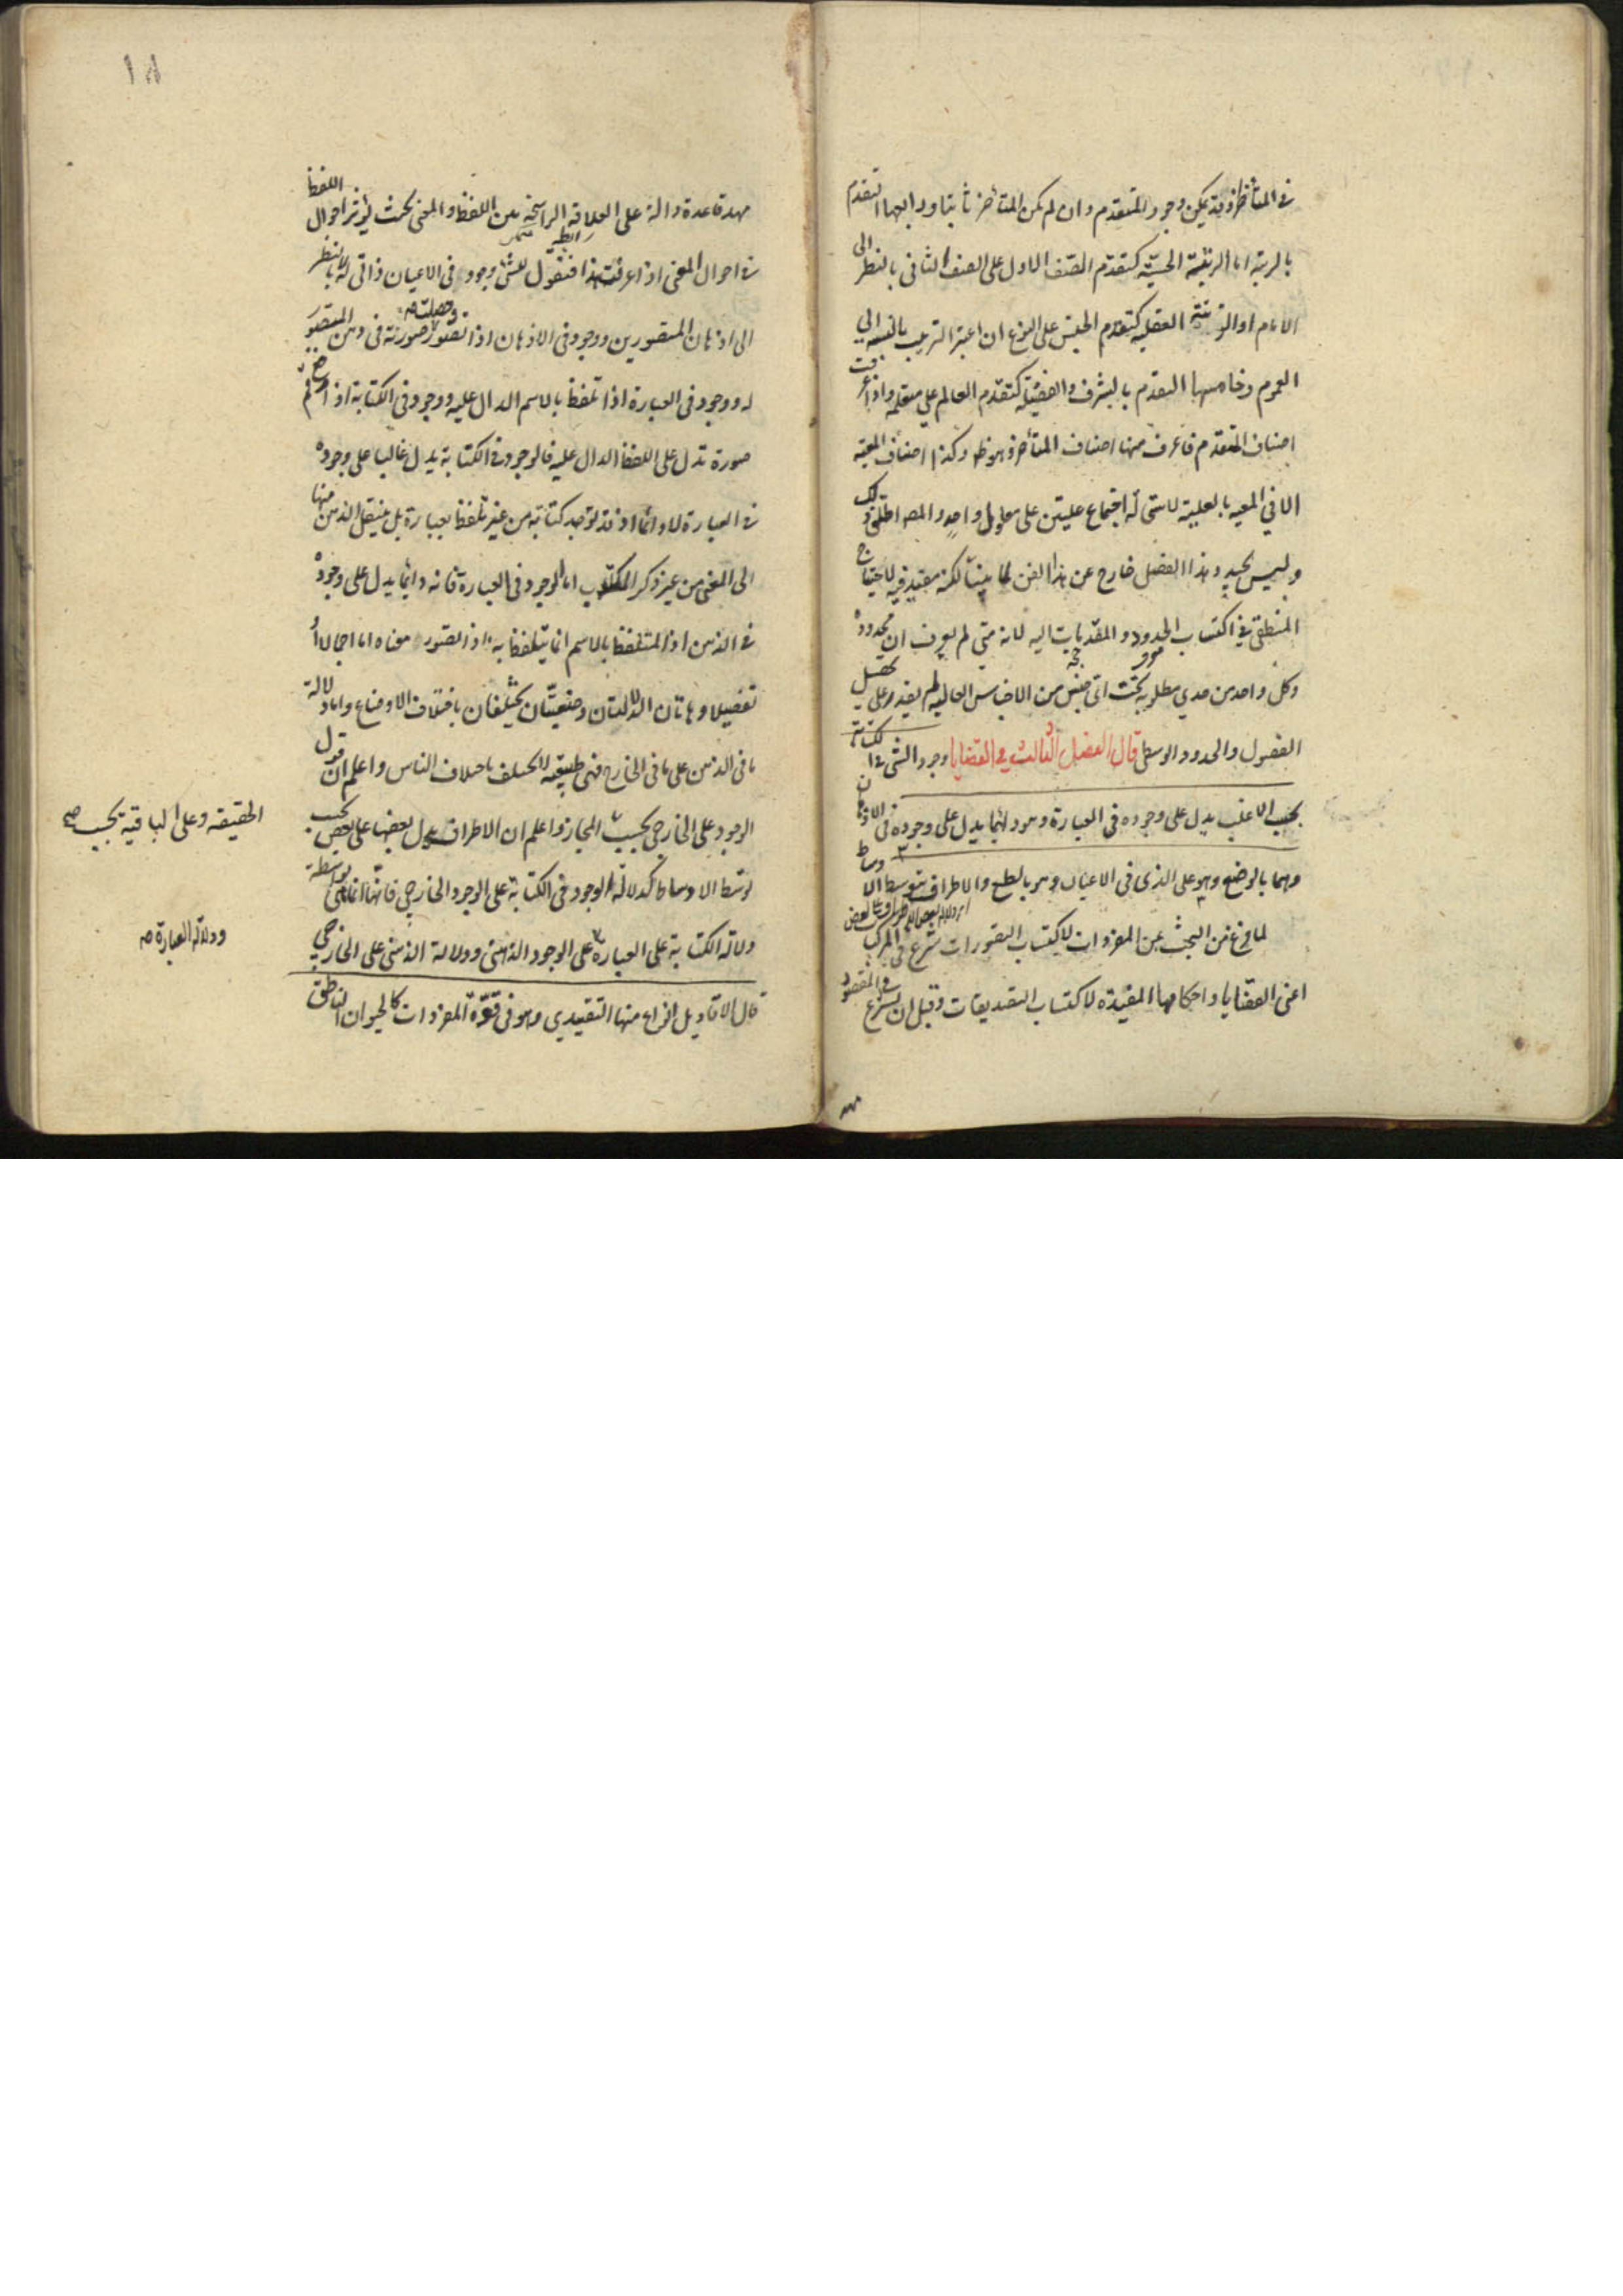 في المتأخر وقد يمكن وجود المتقدم وان لم يكن المتأخر ثابتا ورابعها التقدم
بالرتبة اما الرتبة الحسيّة كتقدّم الصّف الاول على الصف الثاني بالنظر الى
الامام او الرتبة العقلية كتقدم الجنس على النوع ان اعتبر الترتيب بالنسبة الى
العموم وخامسها التقدم بالشرف والفضيلة كتقدّم العالم على متعلمه واذا عرفت
اصناف المتقدم فاعرف منها اصناف المتأخر وهو ظ وكذا اصناف المعية
الا في المعية بالعلية لاستحالة اجتماع علتين على معلول واحد والمصـ اطلق ذلك
وليس بجيد وهذا الفصل خارج عن هذا الفن لما بينا لكنه مفيد فيه لاحتياج
المنطقي في اكتساب الحدود والمقدمات اليه لانه متى لم يعرف ان محدوده
وكل واحد من حدي مطلوبه تحت اي جنس من الاجناس العالية لم يقدر على تحصيل
الفصول والحدود الوسطى قال الفصل الثالث في القضايا وجود الشيء في الكتابة
بحسب الاغلب يدل على وجوده في العبارة وهو دائما يدل على وجوده في الاذهان
وهما بالوضع وهو على الذي في الاعيان وهو بالطبع والاطراف بتوسط الاوساط
لما فرغ من البحث عن المفردات لاكتساب التصورات شرع في المركب
اعني القضايا واحكامها المفيدة لاكتساب التصديقات وقبل ان يشرع في المقصود
مهد
١٨
مهد قاعدة دالة على العلاقة الراسخة بين اللفظ والمعنى بحيث يؤثر احوال اللفظ
في احوال المعنى اذا عرفت هذا فنقول للشيء وجود في الاعيان ذاتي له بالنظر
الى اذهان المتصورين ووجود في الاذهان اذا تصور وحصلت صورته في ذهن المتصوّر
له ووجود في العبارة اذا تلفظ بالاسم الدال عليه ووجود في الكتابة اذا ارتسم
صورة تدل على اللفظ الدال عليه فالوجود في الكتابة يدل غالبا على وجوده
في العبارة لا دائما اذ قد توجد كتابة من غير تلفظ بعبارة بل ينتقل الذهن منها
الى المعنى من غير ذكر المكتوب اما الوجود في العبارة فانه دائما يدل على وجوده
في الذهن اذ المتلفظ بالاسم انما يتلفظ به اذا تصور معناه اما اجمالا أو
تفصيلا وهاتان الدلالتان وضعيتان يختلفان باختلاف الاوضاع واما دلالة
ما في الذهن على ما في الخارج فهي طبيعية لا تختلف باختلاف الناس واعلم ان قول
الوجود على الخارجي بحسب المجاز واعلم ان الاطراف يدل بعضها على بعض بحسب
الحقيقه وعلى الباقية بحسب صح
توسّط الاوساط كدلالة الوجود في الكتابة على الوجود الخارجي فانّها انما هي بواسطة
دلالة الكتابة على العبارة على الوجود الذهني ودلالة الذهني على الخارجي
ودلالة العبارة صح
قال الاقاويل انواع منها التقييدي وهو في قوّة المفردات كالحيوان الناطق